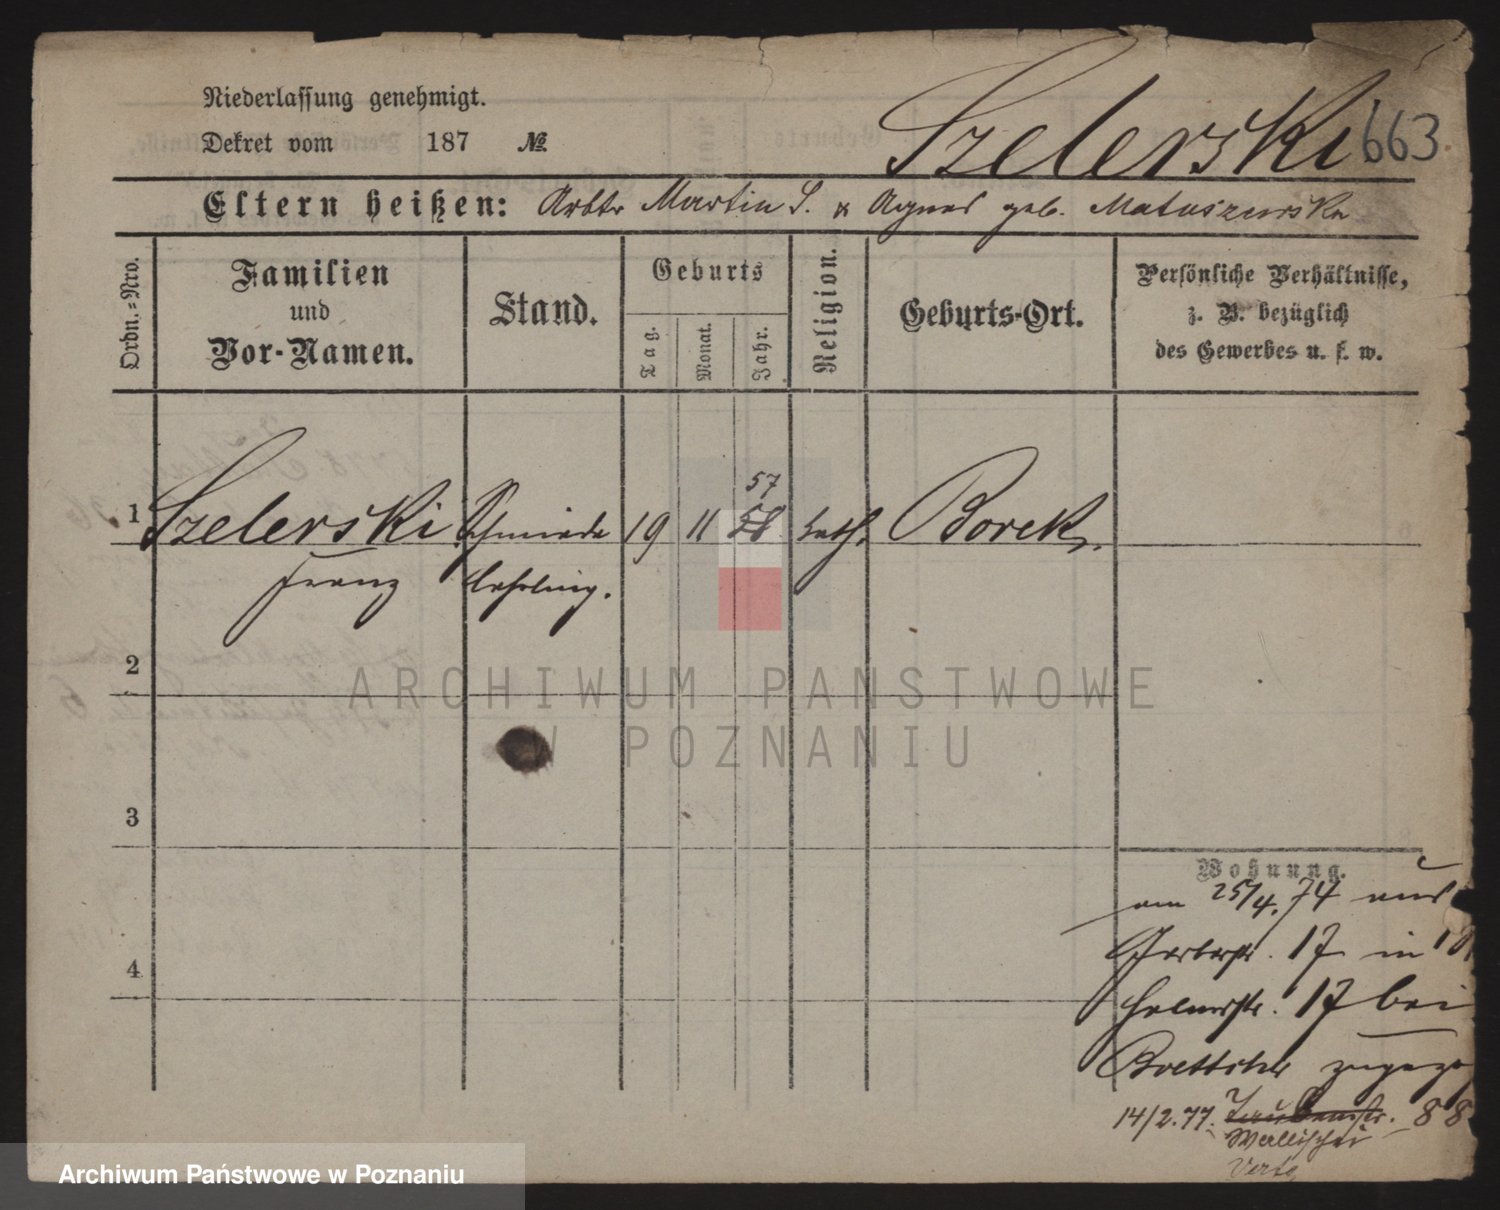 Niederlassung genehmigt.
Dekret vom 187 №
Szelerski 663
Eltern heißen: Arbtr Martin S. & Agnes geb. Matuszewska
Ordn.-Nro.
Familien
und
Vor-Namen.
Stand.
Geburts
Tag.
Monat.
Jahr.
Religion.
Geburts-Ort.
Persönliche Verhältnisse,
z. B. bezüglich
des Gewerbes u. s. w.
57
1 Szelerski Schmiede 19 11 58 kath. Borek.
Franz lehrling.
2
ARCHIWUM PAŃSTWOWE
W POZNANIU
3
Wohnung.
am 25/4. 74 aus
Gerberstr. 17 in
17 bei
Boettcher
14/2. 77. Taubenstr. 88
Wallischei
4
Archiwum Państwowe w Poznaniu